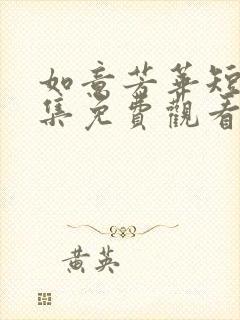 如意芳華短
集免費觀看
黄英